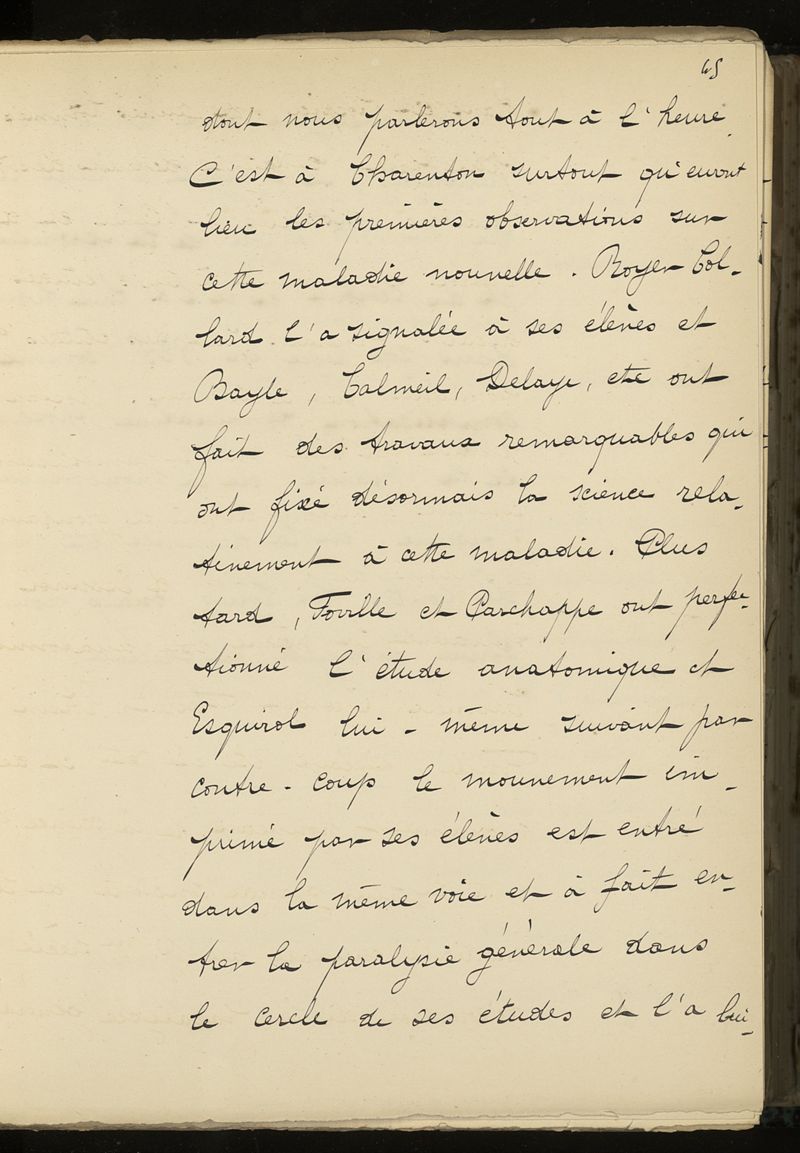 45
dont nous parlerons tout à l'heure.
C'est à Charenton surtout qu'eurent
lieu les premières observations sur
cette maladie nouvelle. Royer Col-
lard l'a signalée à ses élèves et
Bayle, Calmeil, Delaye, etc ont
fait des travaux remarquables qui
ont fixé désormais la science rela-
tivement à cette maladie. Plus
tard, Foville et Parchappe ont perfec-
tionné l'étude anatomique et
Esquirol lui-même suivant par
contre-coup le mouvement im-
primé par ses élèves est entré
dans la même voie et à fait en-
trer la paralysie générale dans
le cercle de ses études et l'a lui-